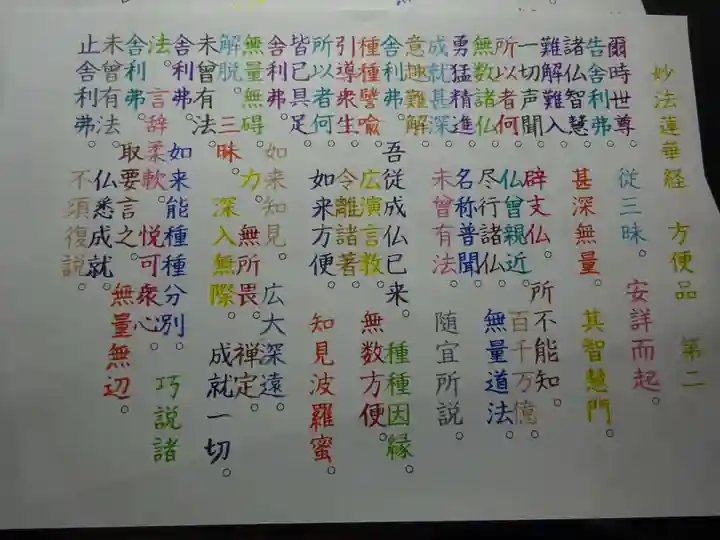 妙法蓮華経 方便品 第二
爾時世尊。従三昧。安詳而起。
告舎利弗。
諸仏智慧。甚深無量。其智慧門。
難解難入。
一切声聞。辟支仏。所不能知。
所以者何。仏曾親近。百千万億
無数諸仏。尽行諸仏。無量道法。
勇猛精進。名称普聞。
成就甚深。未曾有法。随宜所説。
意趣難解。
舎利弗。吾従成仏已来。種種因縁。
種種譬喩。広演言教。無数方便。
引導衆生。令離諸著。
所以者何。如来方便。知見波羅蜜。
皆已具足。
舎利弗。如来知見。広大深遠。
無量無碍。力。無所畏。禅定。
解脱。三昧。深入無際。成就一切。
未曾有法。
舎利弗。如来能種種分別。巧説諸
法。言辞柔軟。悦可衆心。
舎利弗。取要言之。無量無辺。
未曾有法。仏悉成就。
止舎利弗。不須復説。